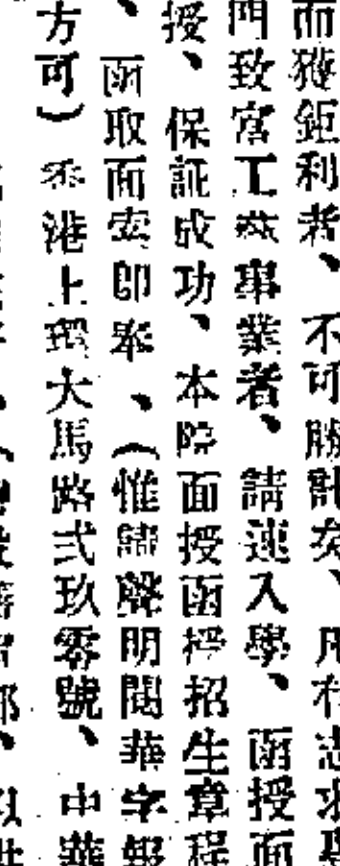 而獲鉅利者、不可勝計矣、凡有志求
門致富工藝事業者、請速入學、函授面
授、保証成功、本院面授函授招生章程
、函取面索即奉、（惟請聲明閱華字報
方可）香港上環大馬路弍玖零號、中華